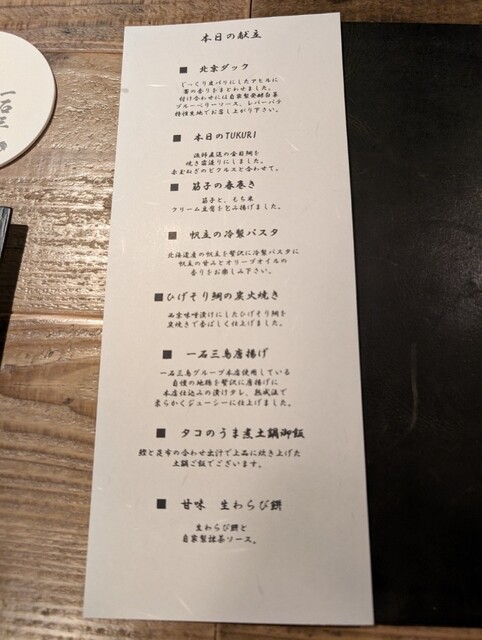 本日の献立
■ 北京ダック
じっくり皮パリにしたアヒルに
藁の香りをまとわせました。
付け合わせには自家製発酵白菜
ブルーベリーソース、レバーパテ
特性生地でお召し上がり下さい。
■ 本日のTUKURI
漁師直送の金目鯛を
焼き霜造りにしました。
赤玉ねぎのピクルスと合わせて。
■ 筋子の春巻き
筋子と、もち米
クリーム豆腐を包み揚げました。
■ 帆立の冷製パスタ
北海道産の帆立を贅沢に冷製パスタに
帆立の甘みとオリーブオイルの
香りをお楽しみ下さい。
■ ひげそり鯛の炭火焼き
西京味噌漬けにしたひげそり鯛を
炭焼きで香ばしく仕上げました。
■ 一石三鳥唐揚げ
一石三鳥グループ本店使用している
自慢の地鶏を贅沢に唐揚げに
本店仕込みの漬けタレ、熟成法で
柔らかくジューシーに仕上げました。
■ タコのうま煮土鍋御飯
鰹と昆布の合わせ出汁で上品に炊き上げた
土鍋ご飯でございます。
■ 甘味 生わらび餅
生わらび餅と
自家製抹茶ソース。
一石三